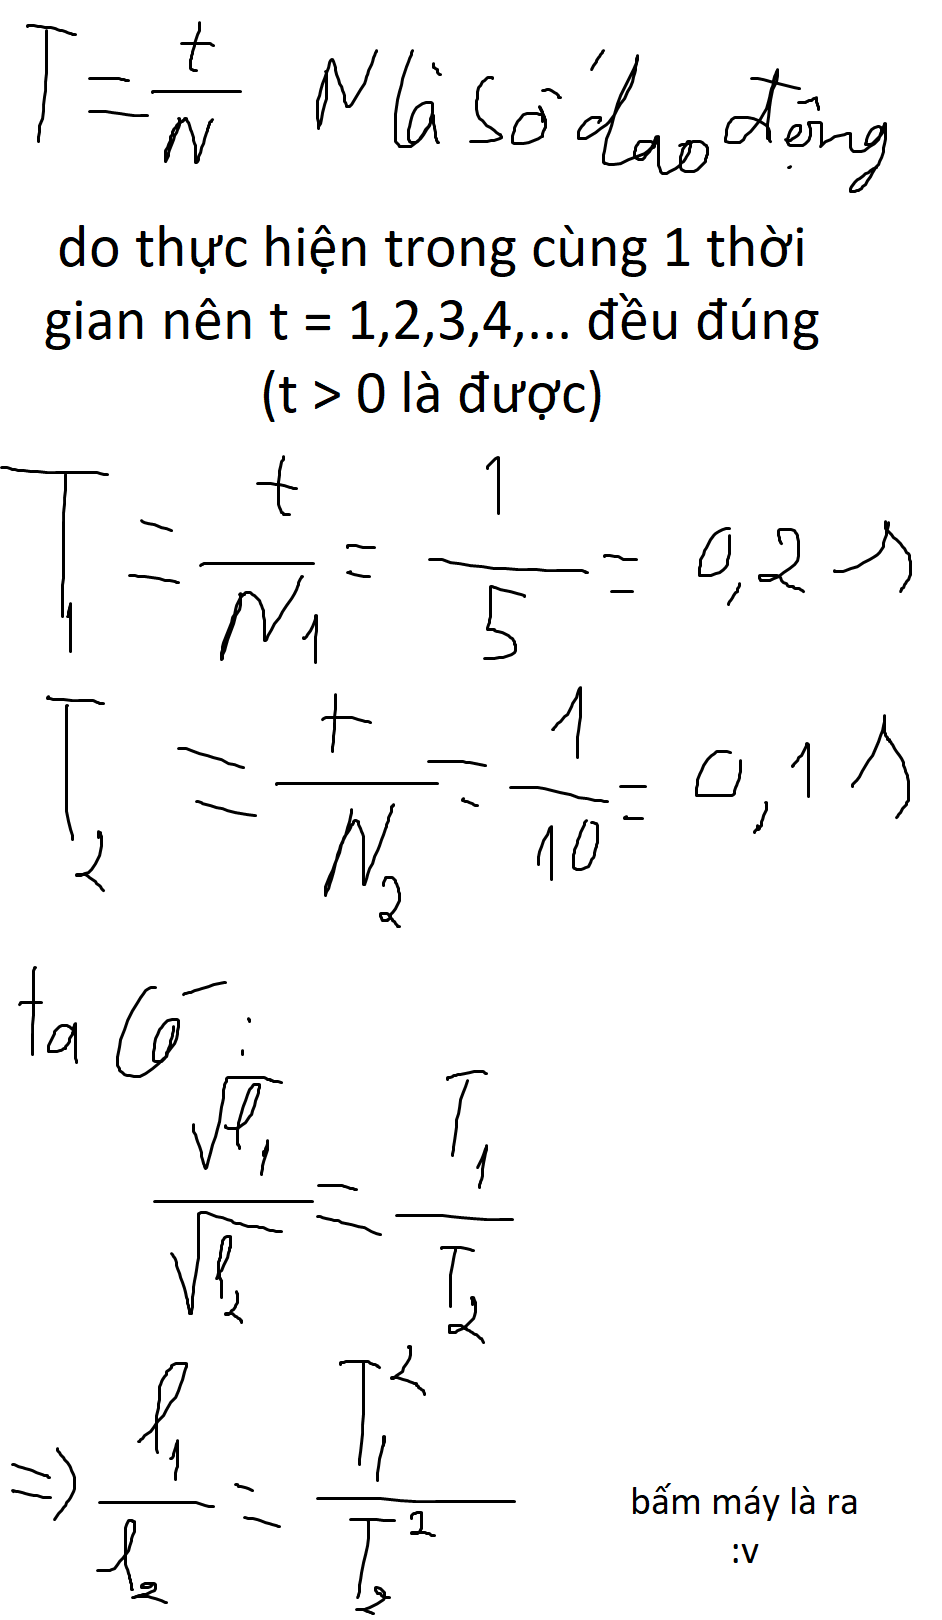 T = t/N N là số dao động
do thực hiện trong cùng 1 thời
gian nên t = 1,2,3,4,... đều đúng
(t > 0 là được)
T₁ = t/N₁ = 1/5 = 0,2 s
T₂ = t/N₂ = 1/10 = 0,1 s
ta có :
√l₁/√l₂ = T₁/T₂
=> l₁/l₂ = T₁²/T₂²
bấm máy là ra
:v